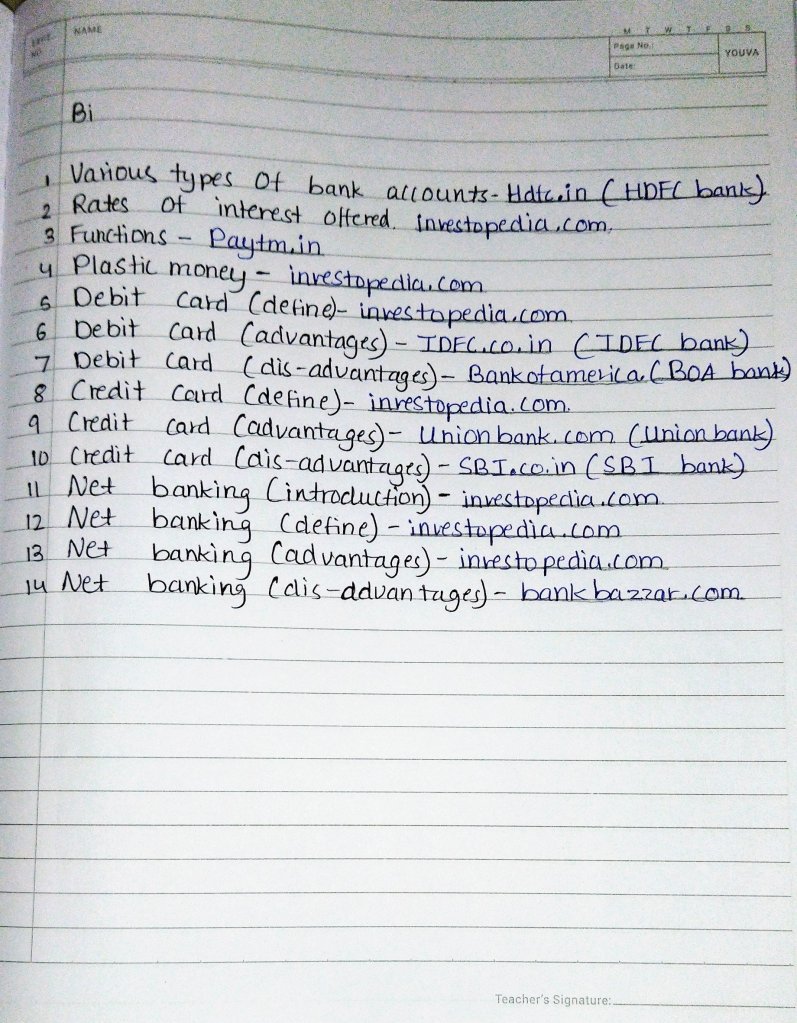 NAME
M T W T F S S
Page No.
YOUVA
Date:
Bi
1 Various types of bank accounts - Hdfc.in (HDFC bank)
2 Rates of interest offered. investopedia.com.
3 Functions - Paytm.in
4 Plastic money - investopedia.com
5 Debit card (define) - investopedia.com
6 Debit card (advantages) - IDFC.co.in (IDFC bank)
7 Debit card (dis-advantages) - Bankofamerica. (BOA bank)
8 Credit card (define) - investopedia.com.
9 Credit card (advantages) - Unionbank.com (Union bank)
10 Credit card (dis-advantages) - SBI.co.in (SBI bank)
11 Net banking (introduction) - investopedia.com
12 Net banking (define) - investopedia.com
13 Net banking (advantages) - investopedia.com
14 Net banking (dis-advantages) - bankbazzar.com
Teacher's Signature: